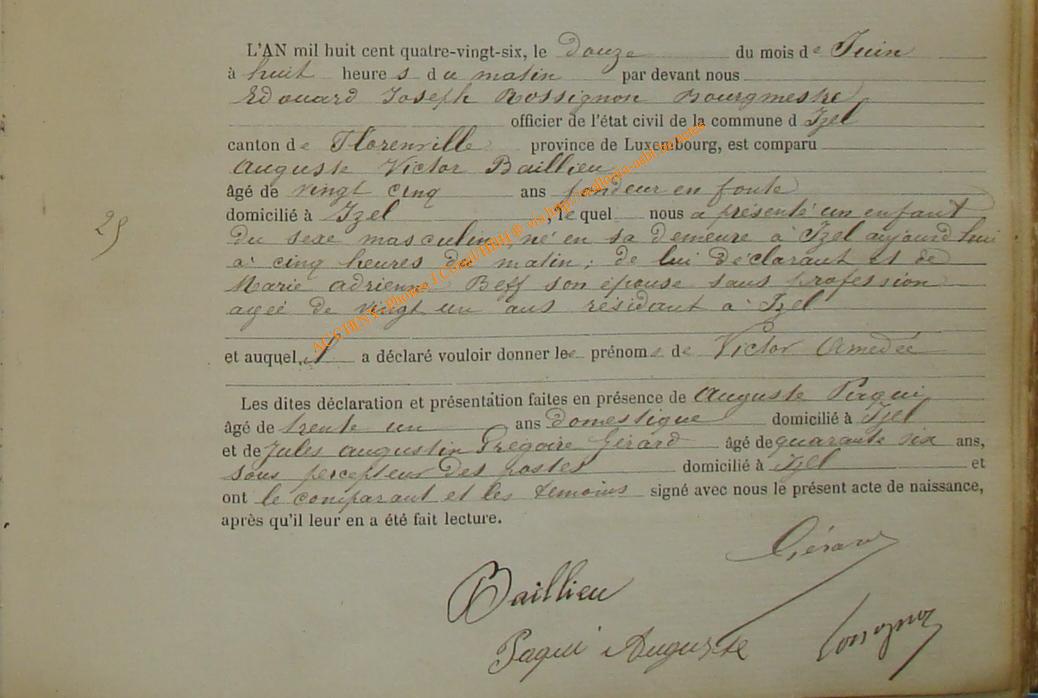 L'AN mil huit cent quatre-vingt-six, le Douze du mois de Juin
à huit heures du matin par devant nous
Edouard Joseph Rossignon Bourgmestre
officier de l'état civil de la commune d Izel
canton de Florenville province de Luxembourg, est comparu
Auguste Victor Baillieu
âgé de vingt cinq ans fondeur en fonte
domicilié à Izel, lequel nous a présenté un enfant
25
du sexe masculin né en sa demeure à Izel aujourd'hui
à cinq heures du matin; de lui déclarant et de
Marie adrienne Beff son épouse sans profession
agée de vingt un ans résidant à Izel
et auquel, il a déclaré vouloir donner les prénoms de Victor Amedée
Les dites déclaration et présentation faites en présence de Auguste Paqui
âgé de trente un ans domestique domicilié à Izel
et de Jules Augustin Grégoire Gérard âgé de quarante six ans,
sous percepteur des postes domicilié à Izel et
ont le comparant et les temoins signé avec nous le présent acte de naissance,
après qu'il leur en a été fait lecture.
Gérard
Baillieu
Paqui Auguste Rossignon